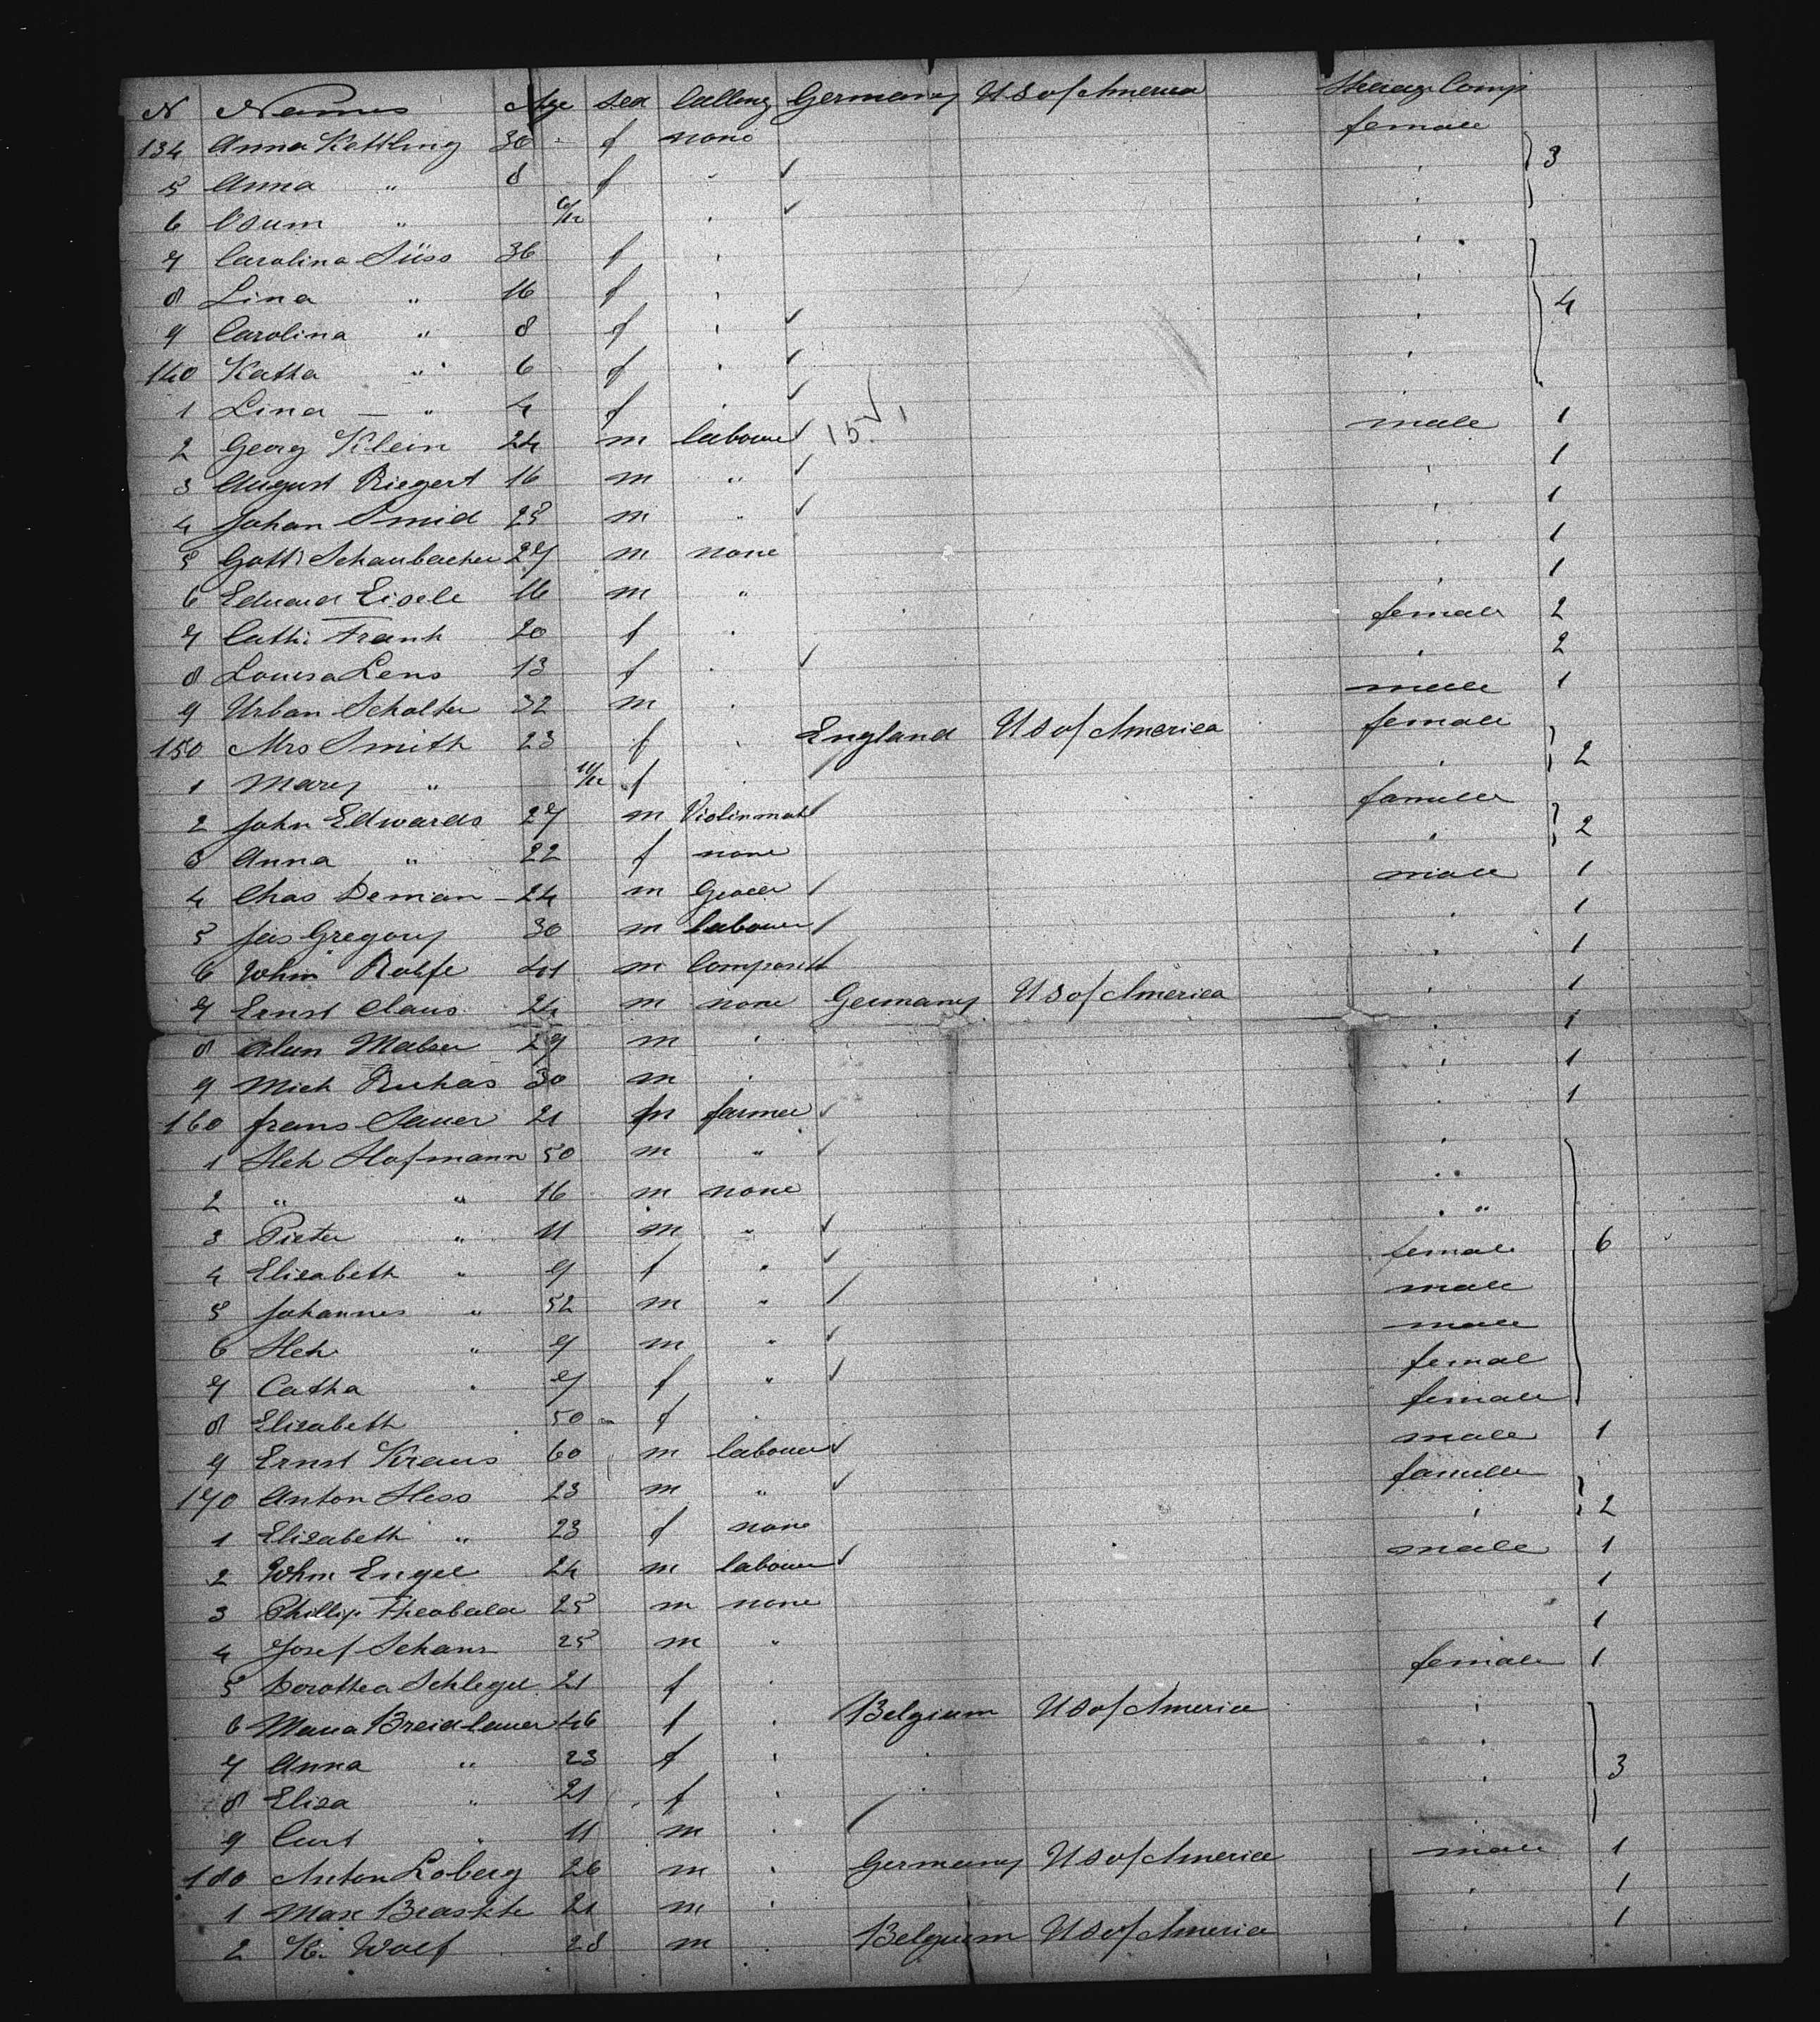 N Names Age Sex Calling Germany U S of America Steerage Comp
134 Anna Kettling 30 f none female
5 Anna " 8 f " ✓ " } 3
6 " 6/12 " ✓ "
7 Carolina Süss 36 f " "
8 Lina " 16 f " "
9 Carolina " 8 f " ✓ " } 4
140 Katha " 6 f " ✓ "
1 Lina — " 4 f " ✓ "
2 Georg Klein 24 m labourer ✓ 15 ✓ male 1
3 August Riegert 16 m " ✓ " 1
4 Johan Smid 25 m " ✓ " 1
5 Gottl Schaubacher 27 m none " 1
6 Eduard Eisele 16 m " " 1
7 Cath: Frank 20 f " female 2
8 Louisa Lens 13 f " ✓ " 2
9 Urban Scholter 32 m " male 1
150 Mrs Smith 23 f " England U S of America female
1 Mary " 11/12 f " / " } 2
2 John Edwards 27 m Violinmak / famille
3 Anna " 22 f none " } 2
4 Chas Deman 24 m Grocer / male 1
5 Jas Gregory 30 m labourer / " 1
6 Wilhm Rolfe 41 m Composit / " 1
7 Ernst Claus 24 m none Germany U S of America " 1
8 29 m " " 1
9 Mich 30 m " " 1
160 frans Sauer 21 m farmer ✓ " 1
1 Heh Hofmann 50 m " ✓ "
2 " " 16 m none "
3 Pieter " 11 m " ✓ "
4 Elisabeth " 9 f " ✓ female } 6
5 Johannes " 52 m " / male
6 Heh " 9 m " ✓ male
7 Catha " 7 f " ✓ femal
8 Elizabeth " 50 f " female
9 Ernst Kraus 60 m labourer ✓ male 1
170 Anton Hess 23 m " ✓ famille
1 Elizabeth " 23 f none " } 2
2 Wilhm Engel 24 m labourer ✓ male 1
3 Phillip Theobald 25 m none 1
4 Josef Schans 25 m " 1
5 Dorothea Schlegel 21 f " female 1
6 Maria Breidlauer 46 f " Belgium U S of America "
7 Anna " 23 f " " "
8 Elisa " 21 f " " " } 3
9 Curt " 11 m " /
180 Anton Loberg 26 m " Germany U S of America male 1
1 Max 21 m " " 1
2 K. Wolf 28 m " Belgium U S of America " 1